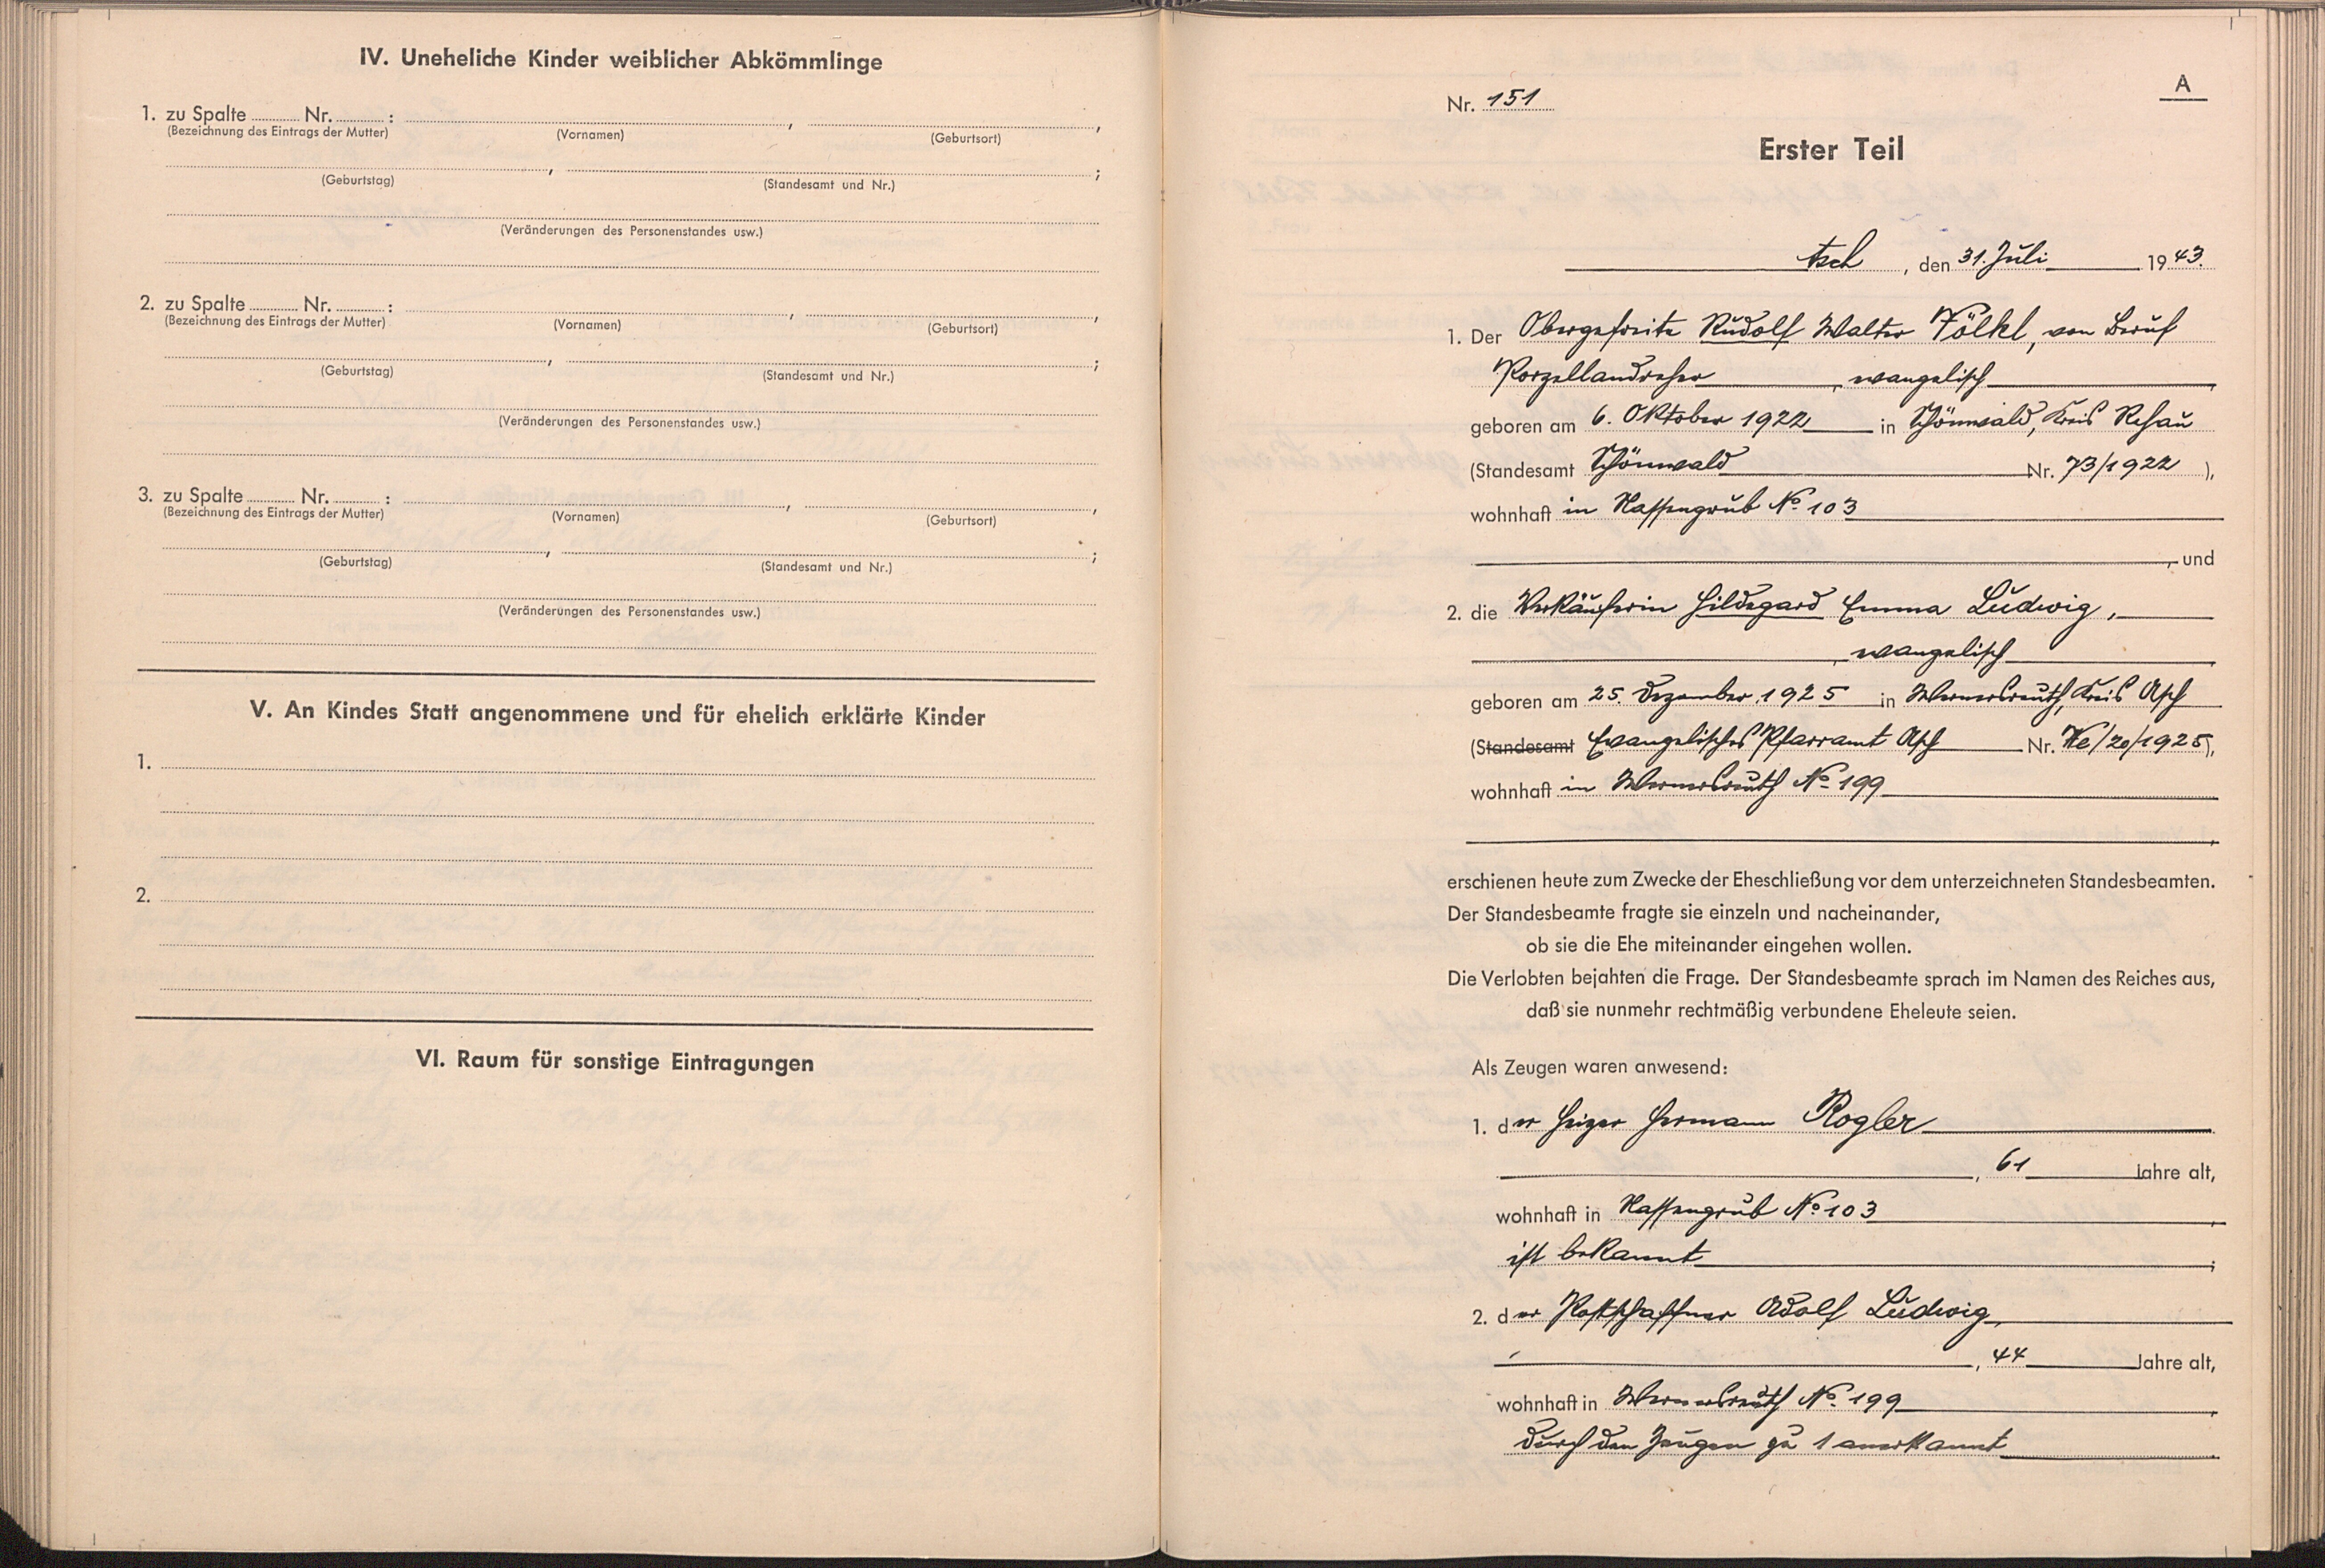 IV. Uneheliche Kinder weiblicher Abkömmlinge
1. zu Spalte ........ Nr. ........ :
(Bezeichnung des Eintrags der Mutter) (Vornamen) (Geburtsort)
(Geburtstag) (Standesamt und Nr.)
(Veränderungen des Personenstandes usw.)
2. zu Spalte ........ Nr. ........ :
(Bezeichnung des Eintrags der Mutter) (Vornamen) (Geburtsort)
(Geburtstag) (Standesamt und Nr.)
(Veränderungen des Personenstandes usw.)
3. zu Spalte ........ Nr. ........ :
(Bezeichnung des Eintrags der Mutter) (Vornamen) (Geburtsort)
(Geburtstag) (Standesamt und Nr.)
(Veränderungen des Personenstandes usw.)
V. An Kindes Statt angenommene und für ehelich erklärte Kinder
1.
2.
VI. Raum für sonstige Eintragungen
A
Nr. 151
Erster Teil
Asch, den 31. Juli 1943.
1. Der Obergefreite Rudolf Walter Völkl, von Beruf
Porzellandreher, evangelisch
geboren am 6. Oktober 1922 in Schönwald, Kreis Rehau
(Standesamt Schönwald Nr. 73/1922),
wohnhaft in Nassengrub No. 103
, und
2. die Verkäuferin Hildegard Emma Ludwig,
, evangelisch
geboren am 25. Dezember 1925 in Wernersreuth, Kreis Asch
(Standesamt Evangelisches Pfarramt Asch Nr. We/20/1925),
wohnhaft in Wernersreuth No. 199
,
erschienen heute zum Zwecke der Eheschließung vor dem unterzeichneten Standesbeamten.
Der Standesbeamte fragte sie einzeln und nacheinander,
ob sie die Ehe miteinander eingehen wollen.
Die Verlobten bejahten die Frage. Der Standesbeamte sprach im Namen des Reiches aus,
daß sie nunmehr rechtmäßig verbundene Eheleute seien.
Als Zeugen waren anwesend:
1. der Heizer Hermann Rogler
, 61 Jahre alt,
wohnhaft in Nassengrub No. 103,
ist bekannt;
2. der Postschaffner Adolf Ludwig,
, 44 Jahre alt,
wohnhaft in Wernersreuth No. 199,
durch den Zeugen zu 1 anerkannt